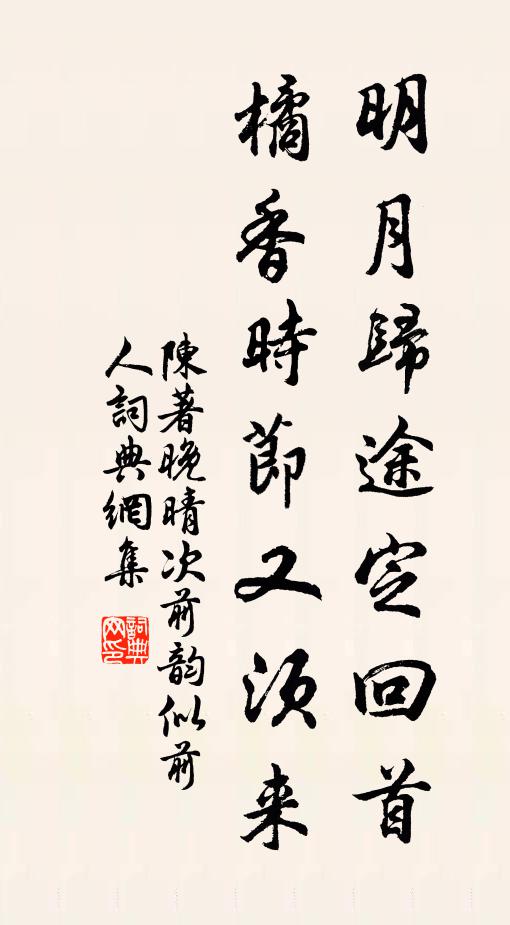 明月歸途定回首
橘香時節又須来
陳著晚晴次前韵似前
人詞典網集
詞典网印